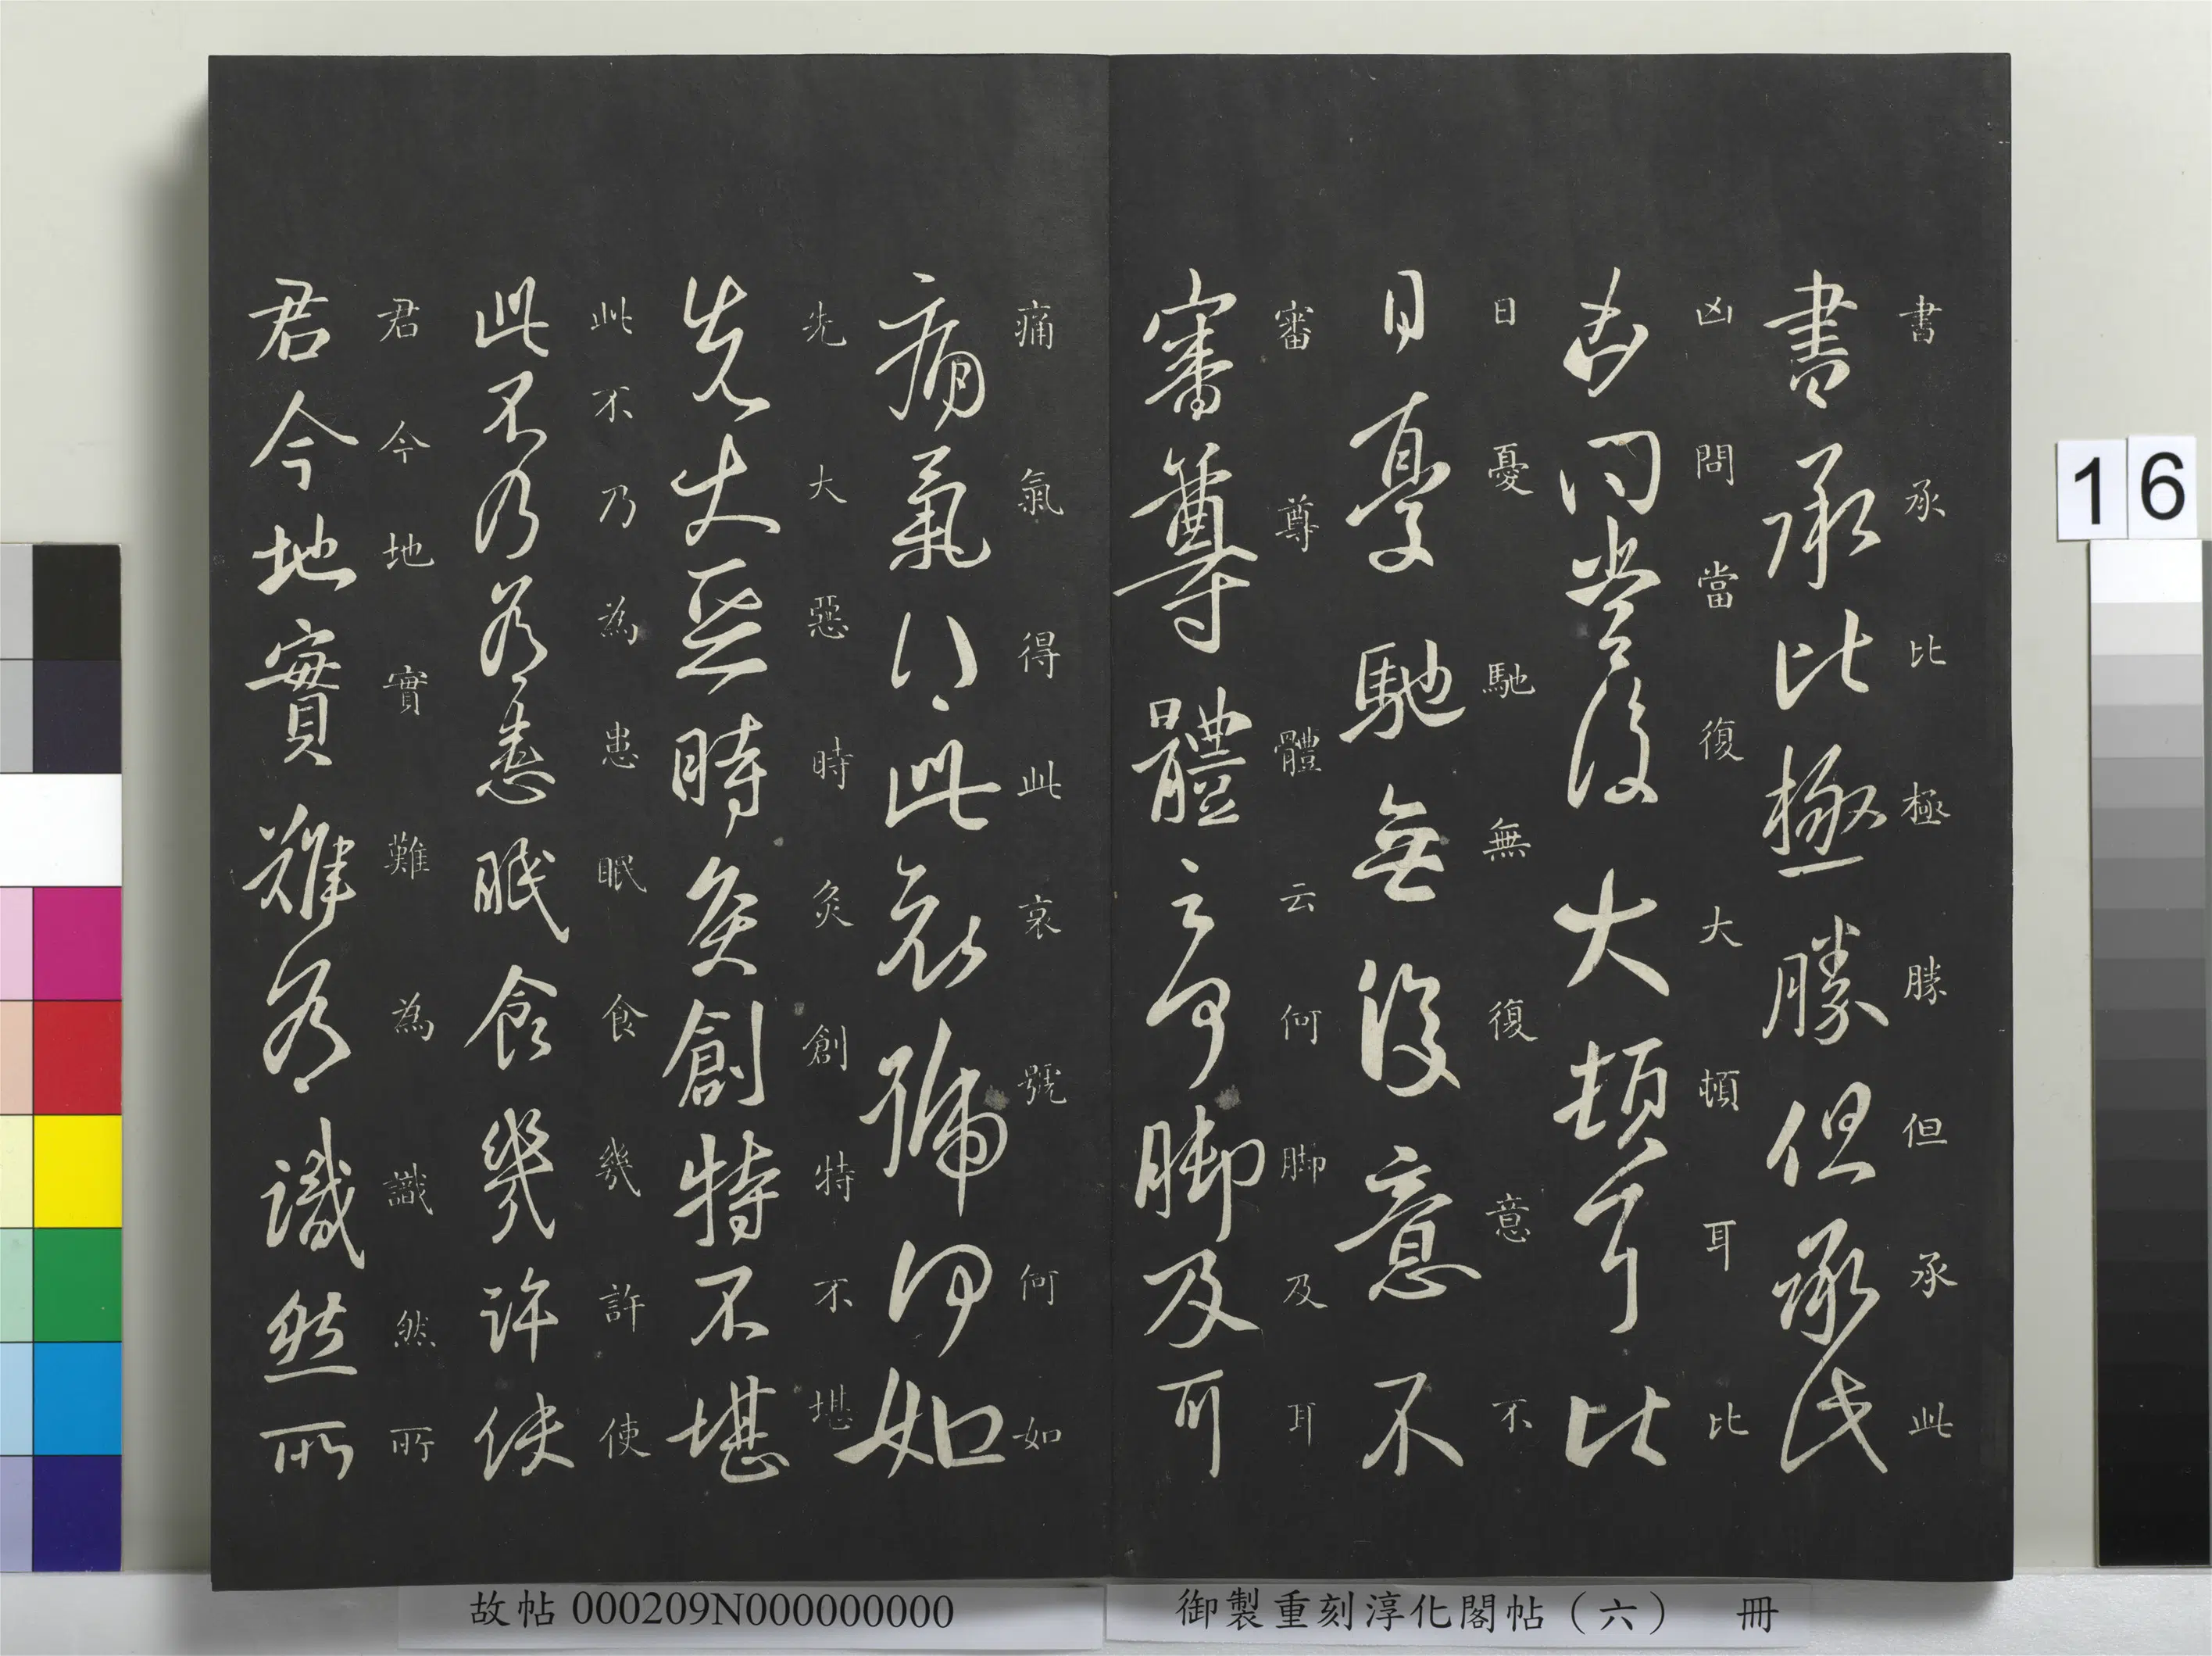 書承比極勝但承此
書承比極勝但承此
凶問當復大頓耳比
凶問當復大頓耳比
日憂馳無復意不
日憂馳無復意不
審尊體云何脚及耳
審尊體云何脚及耳
痛氣得此哀號何如
痛氣得此哀號何如
先大惡時灸創特不堪
先大惡時灸創特不堪
此不乃為患眠食幾許使
此不乃為患眠食幾許使
君今地實難為識然所
君今地實難為識然所
16
御製重刻淳化閣帖（六） 冊
故帖 000209N000000000